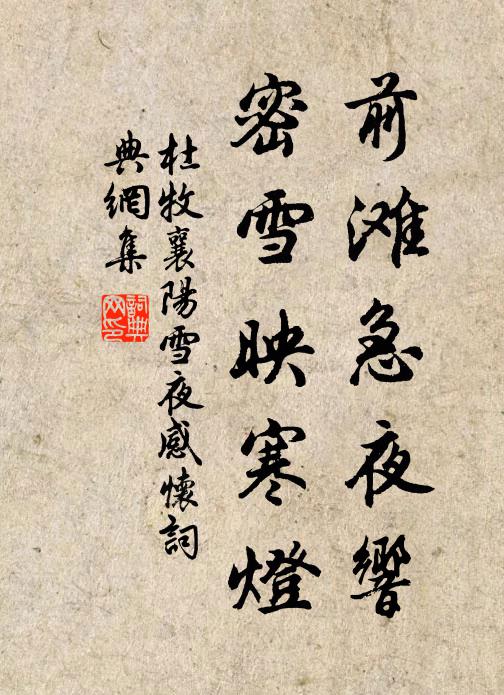 前滩急夜響
密雪映寒燈
杜牧襄陽雪夜感懷詞
典網集
詞典
网印